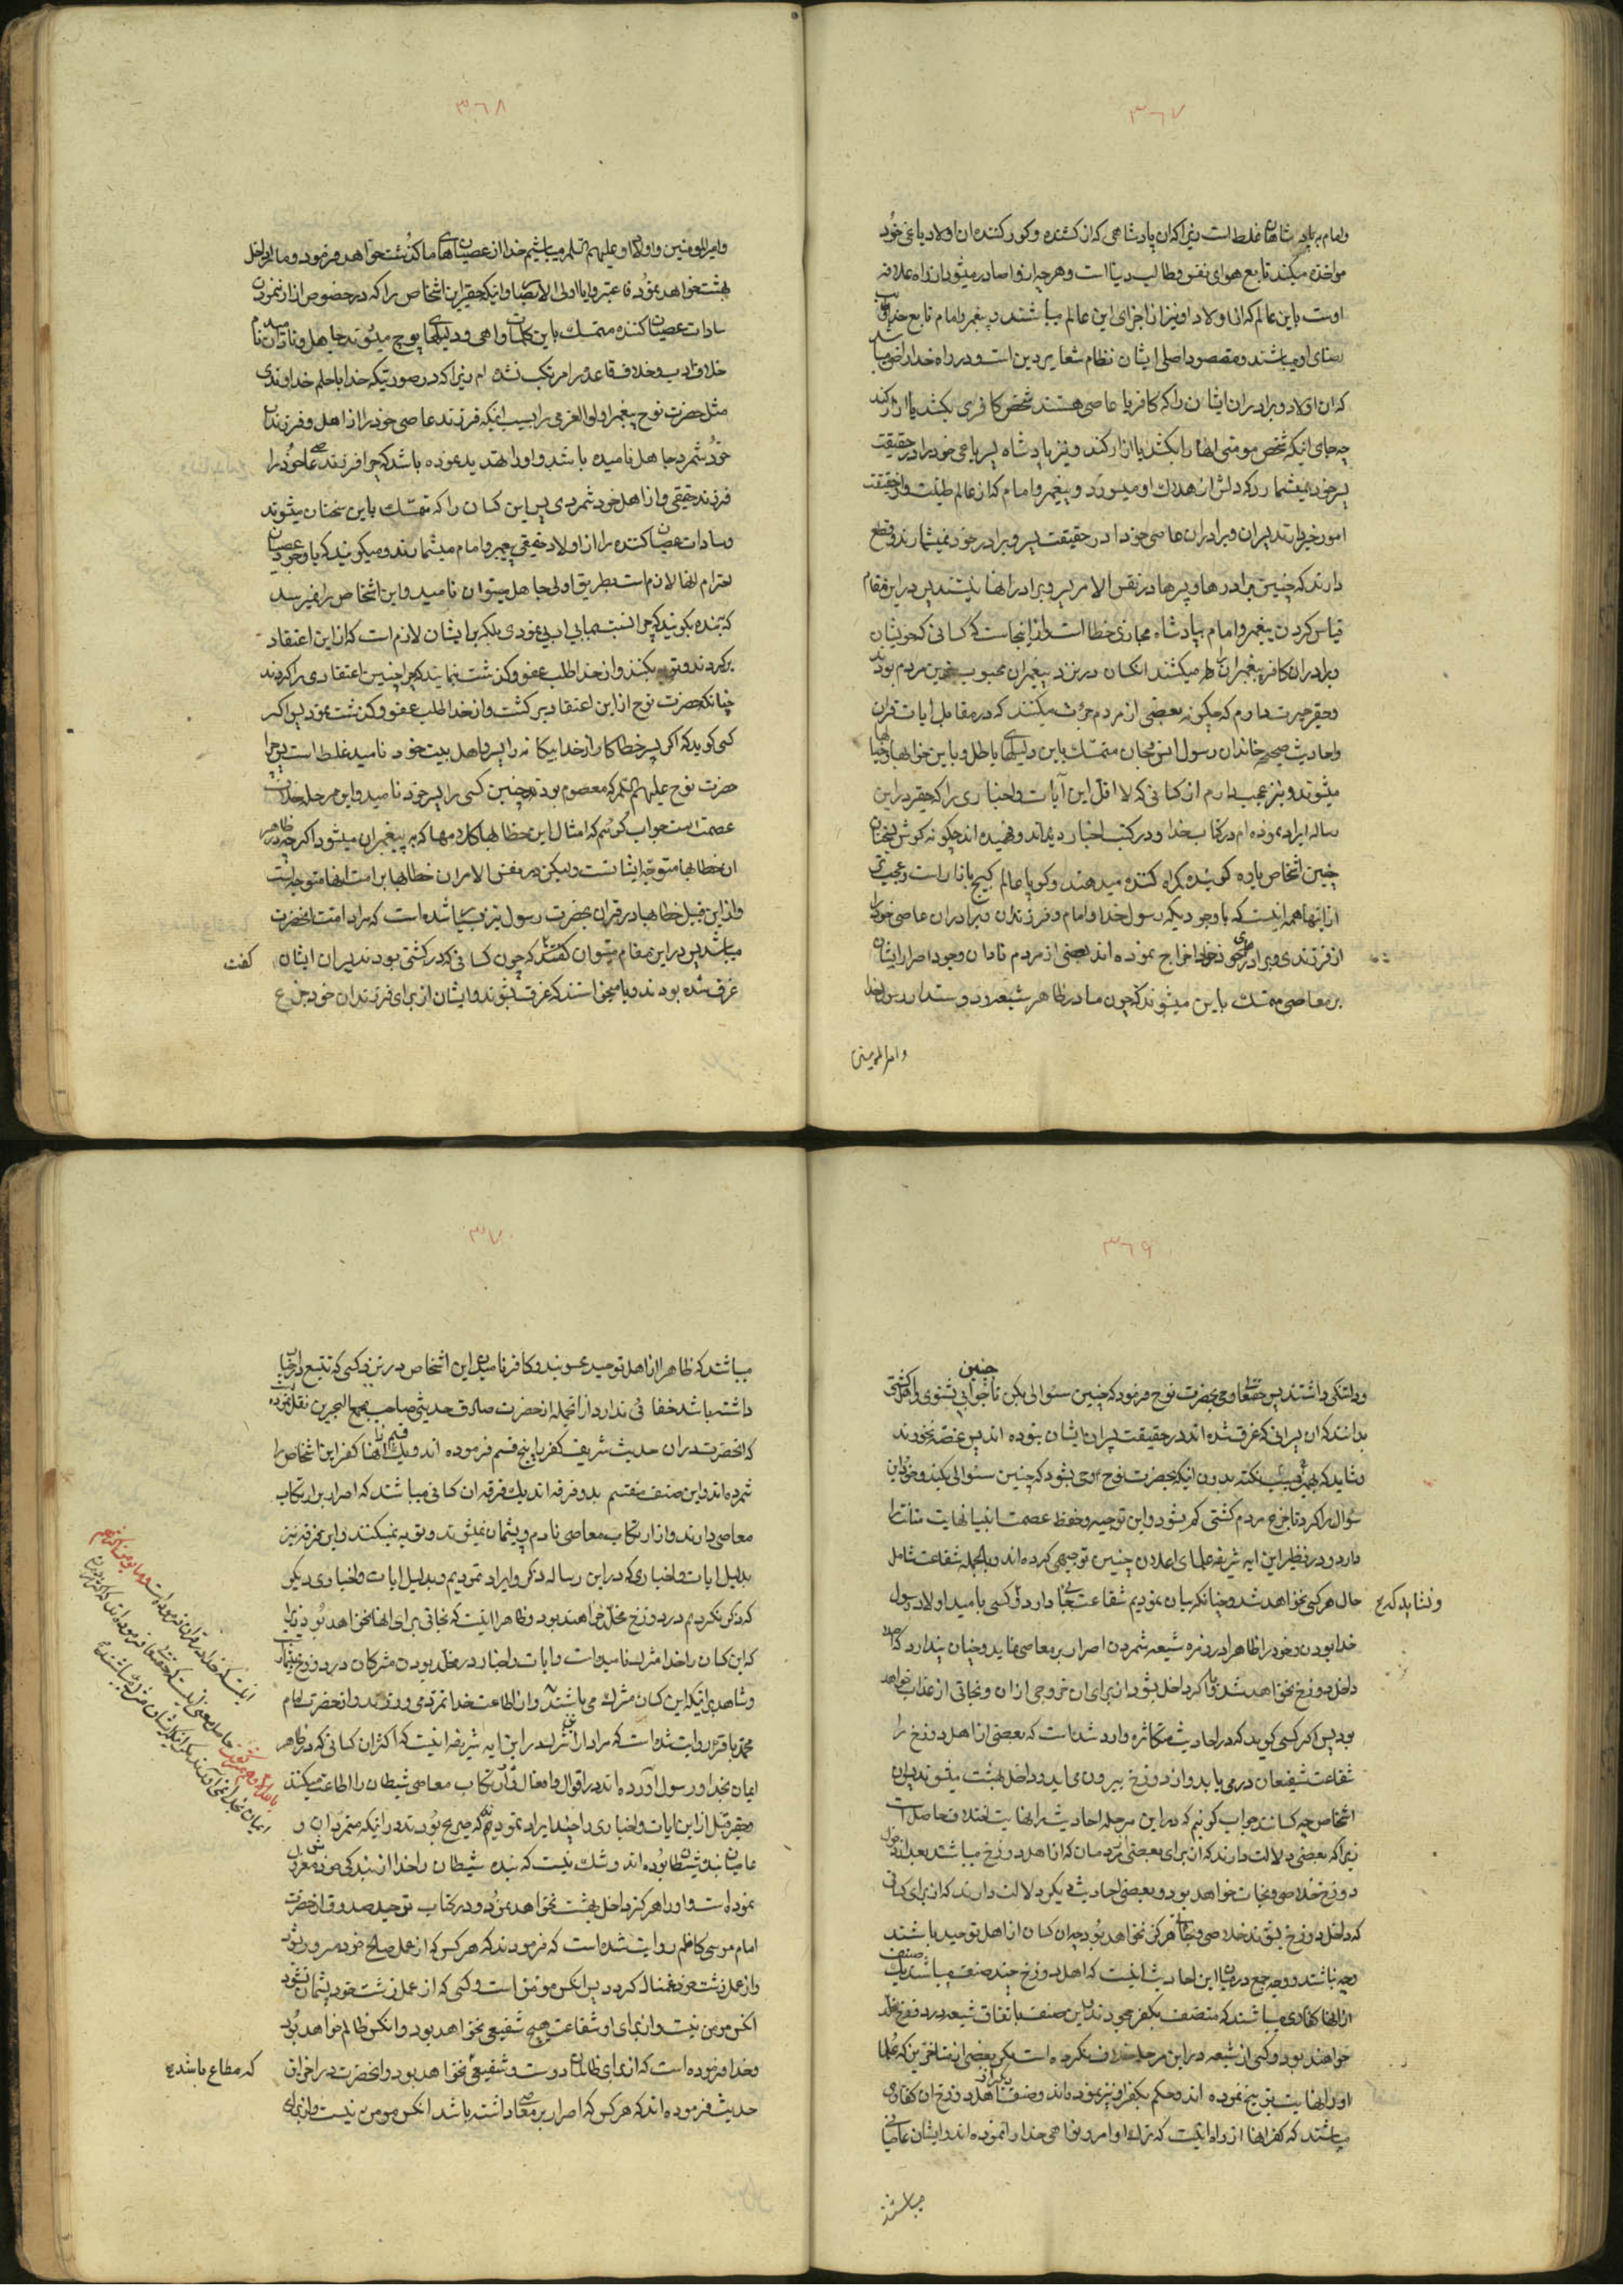 ٣٦٧
وامام بر پادشاهان غلط است زیرا که ان پادشاهی که ان کشنده و کور کننده ان اولاد یاغی خود
مواخذه میکند تابع هوای نفس و طالب دنیا است و هر چه از او صادر میشود از راه علاقه
اوست باین عالم که ان اولاد او نیز از اجزای این عالم میباشند و پیغمبر و امام تابع خدا و
رضای او میباشند و مقصود اصلی ایشان نظام شعایر دین است و در راه خدا راضی میباشند
که ان اولاد و برادران ایشان را که کافر یا عاصی هستند شخص کافری بکشد یا ازار کند
چه جای اینکه شخص مومنی انها را بکشد یا ازار کند و نیز پادشاه پسر یاغی خود را در حقیقت
پسر خود میشمارد که دلش از هلاک او میسوزد و پیغمبر و امام که از عالم طینت و از حقیقت
امور خبر دارند پسران و برادران عاصی خود را در حقیقت پسر و برادر خود نمیشمارند و قطع
دارند که چنین برادرها و پسرها در نفس الامر پسر و برادر انها نیستند پس در این مقام
قیاس کردن پیغمبر و امام بپادشاه مجازی خطا است و از اینجاست که کسانی که خویشان
و برادران کافر پیغمبران را میکشتند انکسان در نزد پیغمبران محبوب ترین مردم بودند
و حقیر حیرت دارم که چگونه بعضی از مردم جرئت میکنند که در مقابل ایات قران
و احادیث صحیحه خاندان رسول انس و جان متمسک باین دلیلهای باطل و باین خوابها و خیالها
میشوند و نیز عجب دارم از کسانی که لا اقل این آیات و اخباری را که حقیر در این
رساله ایراد نموده ام در کتاب خدا و در کتب اخبار دیده اند و فهمیده اند چگونه گوش بسخنان
چنین اشخاص یاوه گوینده گمراه کننده میدهند و گویا عالم گیج بازار است و عجبتر
از اینها همه اینست که با وجودیکه رسول خدا و امام و فرزندان و برادران عاصی خود را
از فرزندی و برادری خود اخراج نموده اند بعضی از مردم نادان وجود اصرار ایشان
بر معاصی متمسک باین میشوند که چون ما در ظاهر شیعه و دوستدار رسول خدا
وامیرالمومنین
٣٦٨
وامیرالمومنین و اولاد او علیهم السلم میباشیم خدا از عصیانهای ما گذشت خواهد فرمود و ما را داخل
بهشت خواهد نمود فاعتبروا یا اولی الابصار و اینکه حقیر این اشخاص را که در خصوص ازار نمودن
سادات عصیان کننده متمسک باین کلمات واهی و دلیلهای پوچ میشوند جاهل و نادان نامیدم
خلاف ادب و خلاف قاعده را مرتکب نشده ام زیرا که در صورتیکه خدا با حلم خداوندی
مثل حضرت نوح پیغمبر اولوالعزمی را بسبب اینکه فرزند عاصی خود را از اهل و فرزندان
خود شمرد جاهل نامیده باشد و او را تهدید نموده باشد که چرا فرزند عاصی خود را
فرزند حقیقی و از اهل خود شمردی پس این کسان را که متمسک باین سخنان میشوند
و سادات عصیان کننده را از اولاد حقیقی پیغمبر و امام میشمارند و میگویند که با وجود عصیان
احترام انها لازم است بطریق اولی جاهل میتوان نامید و این اشخاص را نمیرسد
که ببنده بگویند که چرا نسبت بما بی ادبی نمودی بلکه بر ایشان لازم است که از این اعتقاد
برگردند و توبه بکنند و از خدا طلب عفو و گذشت نمایند که چرا چنین اعتقادی را کردند
چنانکه حضرت نوح از این اعتقاد برگشت و از خدا طلب عفو و گذشت نمود پس اگر
کسی گوید که اگر پسر خطاکار از خدا بیگانه را پسر و اهل بیت خود نامید غلط است پس چرا
حضرت نوح علیه السلم که معصوم بودند چنین کسی را پسر خود نامید و این مرحله خلاف
عصمت است جواب گوئیم که امثال این خطابها و کلامها که به پیغمبران میشود اگر چه در ظاهر
ان خطابها متوجه ایشانست و لیکن در نفس الامر ان خطابها بر امت انها متوجه است
و از این قبیل خطابها در قران بحضرت رسول نیز بسیار شده است که مراد امت انحضرت
میباشد پس در این مقام میتوان گفت که چون کسانی که در کشتی بودند پسران ایشان
گفت
غرق شده بودند و یا میخواستند که غرق بشوند و ایشان از برای فرزندان خود جزع
٣٦٩
و دلتنگی داشتند پس حقتعالی وحی بحضرت نوح فرمود که چنین سئوالی بکن تا چنین جوابی بشنوی و اهل کشتی
بدانند که ان پسرانی که غرق شده اند در حقیقت پسران ایشان نبوده اند پس غصه نخورند
و شاید که بهمین سبب نکته بدون اینکه بحضرت نوح وحی بشود که چنین سئوالی بکند خود این
سؤال را کرد تا جزع مردم کشتی کم بشود و این توجیه و حفظ عصمت انبیا نهایت متانت را
دارد و در نظیر این ایه شریفه علمای اعلام چنین توجیهی کرده اند و بالجمله شفاعت شامل
حال هر کسی نخواهد شد و چنانکه بیان نمودیم شفاعت جائی دارد و کسی بامید اولاد رسول
ونشاید که
خدا بودن و خود را ظاهرا در زمره شیعه شمردن اصرار بر معاصی نماید و چنان پندارد که
داخل دوزخ نخواهد شد و یا که اگر داخل بشود از برای ان خروجی از ان و نجاتی از عذاب خواهد
بود پس اگر کسی گوید که در احادیث متکاثره وارد شده است که بعضی از اهل دوزخ را
شفاعت شفیعان در می یابد و از دوزخ بیرون می اید و داخل بهشت میشوند پس ان
اشخاص چه کسانند جواب گوئیم که در این مرحله احادیث را نهایت اختلاف حاصل است
زیرا که بعضی دلالت دارند که از برای بعضی مردمان که از اهل دوزخ میباشند بعد از دخول
دوزخ خلاصی و نجات خواهد بود و بعضی احادیث دیگر دلالت دارند که از برای کسانی
که داخل دوزخ بشوند خلاصی و نجات هرگز نخواهد بود چه ان کسان از اهل توحید باشند
و چه نباشند و وجه جمع در میان این احادیث اینست که اهل دوزخ چند صنف میباشند یک صنف
از انها کفاری میباشند که متصف بکفر جحودند و این صنف باتفاق شیعه در دوزخ مخلد
خواهند بود و کسی از شیعه در این مرحله خلاف نکرده است مگر بعضی از متاخرین که علما
او را نهایت توبیخ نموده اند و حکم بکفر او نیز نموده اند و صنف دیگر از اهل دوزخ ان کفاری
میباشند که کفر انها از راه اینست که ترک اوامر و نواهی خدا را نموده اند و ایشان عاصیانی
میباشند
٣٧٠
میباشند که ظاهرا از اهل توحید محسوبند و کافر نامیدن این اشخاص در نزد کسی که تتبع در اخبار
داشته باشد خفائی ندارد از انجمله از حضرت صادق حدیثی صاحب مجمع البحرین نقل نموده است
که انحضرت در ان حدیث شریف کفر را پنج قسم فرموده اند و یک قسم از انها کفر این اشخاص را
شمرده اند و این صنف منقسم بدو فرقه اند یک فرقه ان کسانی میباشند که اصرار بر ارتکاب
معاصی دارند و از ارتکاب معاصی نادم و پشیمان نمیشوند و توبه نمیکنند و این فرقه نیز
بدلیل ایات و اخباری که در این رساله ذکر و ایراد نمودیم و بدلیل ایات و اخباری دیگر
که ذکر نکردیم در دوزخ مخلد خواهند بود و ظاهرا اینست که نجاتی برای انها نخواهد بود زیرا
که این کسان را خدا مشرک نامیده است و ایات و اخبار در مخلد بودن مشرکان در دوزخ بسیار است
و شاهد بر اینکه این کسان مشرک میباشند و از اطاعت خدا تمرد می ورزند و از حضرت امام
محمد باقر روایت شده است که مراد از شرک در این ایه شریفه اینست که اکثر ان کسانی که در ظاهر
ایمان بخدا و رسول آورده اند در اقوال و افعال و ارتکاب معاصی شیطان را اطاعت میکنند
و حقیر قبل از این ایات و اخباری را چند ایراد نمودیم که صریح بودند در اینکه متمردان و
عاصیان بنده شیطان بوده اند و شک نیست که بنده شیطان را خدا از بندگی خود معزول
نموده است و او را هرگز داخل بهشت نخواهد نمود و در کتاب توحید صدوق از حضرت
امام موسی کاظم روایت شده است که فرمودند که هر کس که از عمل صالح خود مسرور شود
و از عمل زشت خود غمناک گردد پس انکس مومن است و کسی که از عمل زشت خود پشیمان نشود
انکس مومن نیست و از برای او شفاعت هیچ شفیعی نخواهد بود و انکس ظالم خواهد بود
و خدا فرموده است که از برای ظالمان دوست و شفیعی نخواهد بود و انحضرت در اخر این
که مطاع باشد
حدیث فرموده اند که هر کس که اصرار بر معاصی داشته باشد انکس مومن نیست و از برای
اینست که خدا در قران فرموده است وما یؤمن اکثرهم
بالله الا وهم مشرکون